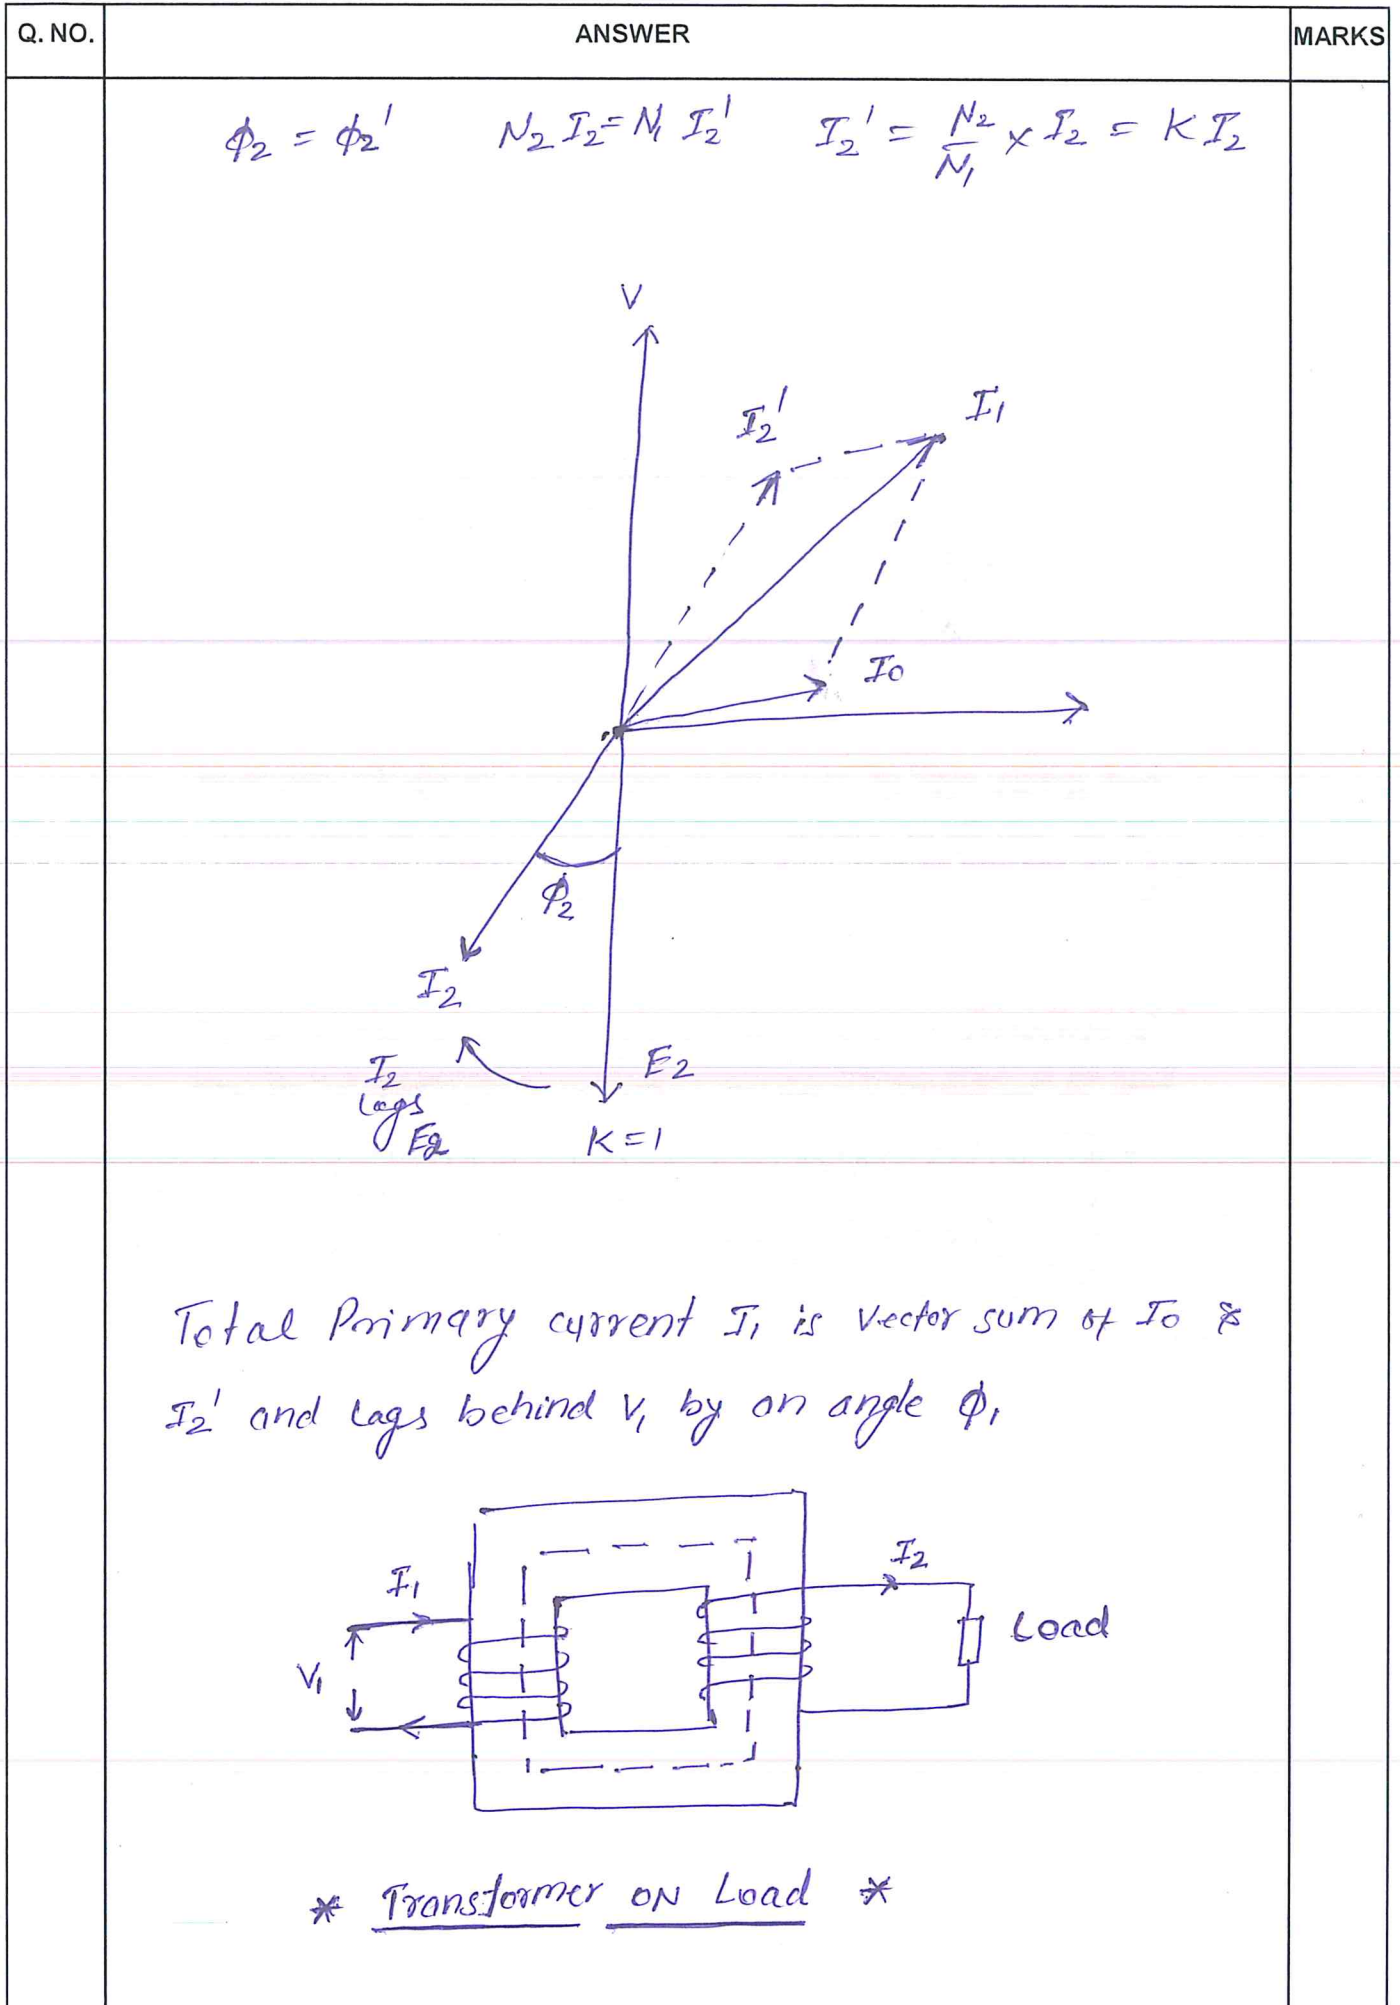 Q. NO. ANSWER MARKS
ϕ₂ = ϕ₂' N₂ I₂ = N₁ I₂' I₂' = N₂/N₁ × I₂ = K I₂
V
I₁
I₂'
I₀
ϕ₂
I₂
E₂
I₂
lags
E₂
K = 1
Total Primary current I₁ is vector sum of I₀ &
I₂' and lags behind V₁ by an angle ϕ₁
I₂
I₁
Load
V₁
* Transformer ON Load *